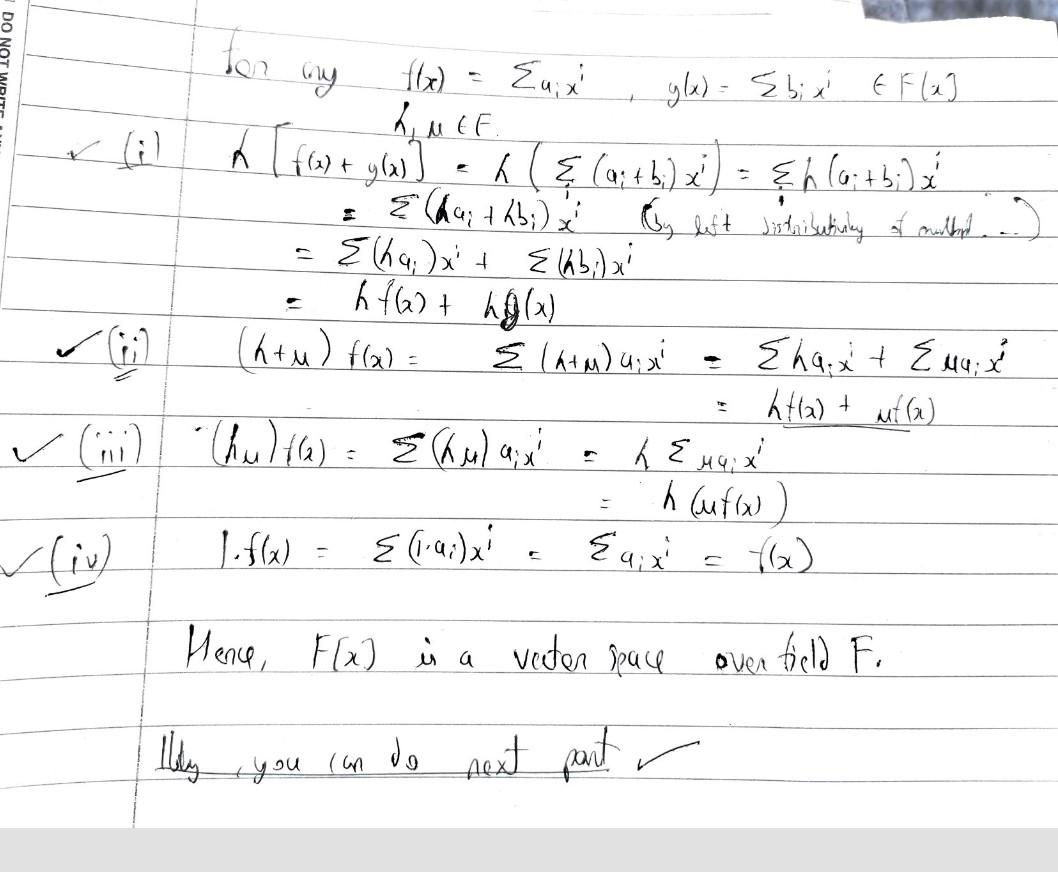 DO NOT WRITE
for any f(x) = Σaᵢxⁱ , g(x) = Σbᵢxⁱ ∈ F[x]
λ, μ ∈ F.
(i) λ[f(x) + g(x)] = λ(Σ(aᵢ+bᵢ)xⁱ) = Σλ(aᵢ+bᵢ)xⁱ
= Σ(λaᵢ + λbᵢ)xⁱ (by left distributivity of ...)
= Σ(λaᵢ)xⁱ + Σ(λbᵢ)xⁱ
= λf(x) + λg(x)
(ii) (λ+μ) f(x) = Σ(λ+μ)aᵢxⁱ = Σλaᵢxⁱ + Σμaᵢxⁱ
= λf(x) + μf(x)
(iii) (λμ)f(x) = Σ(λμ)aᵢxⁱ = λΣμaᵢxⁱ
= λ(μf(x))
(iv) 1.f(x) = Σ(1·aᵢ)xⁱ = Σaᵢxⁱ = f(x)
Hence, F[x] is a vector space over field F.
Illly, you can do next part ✓